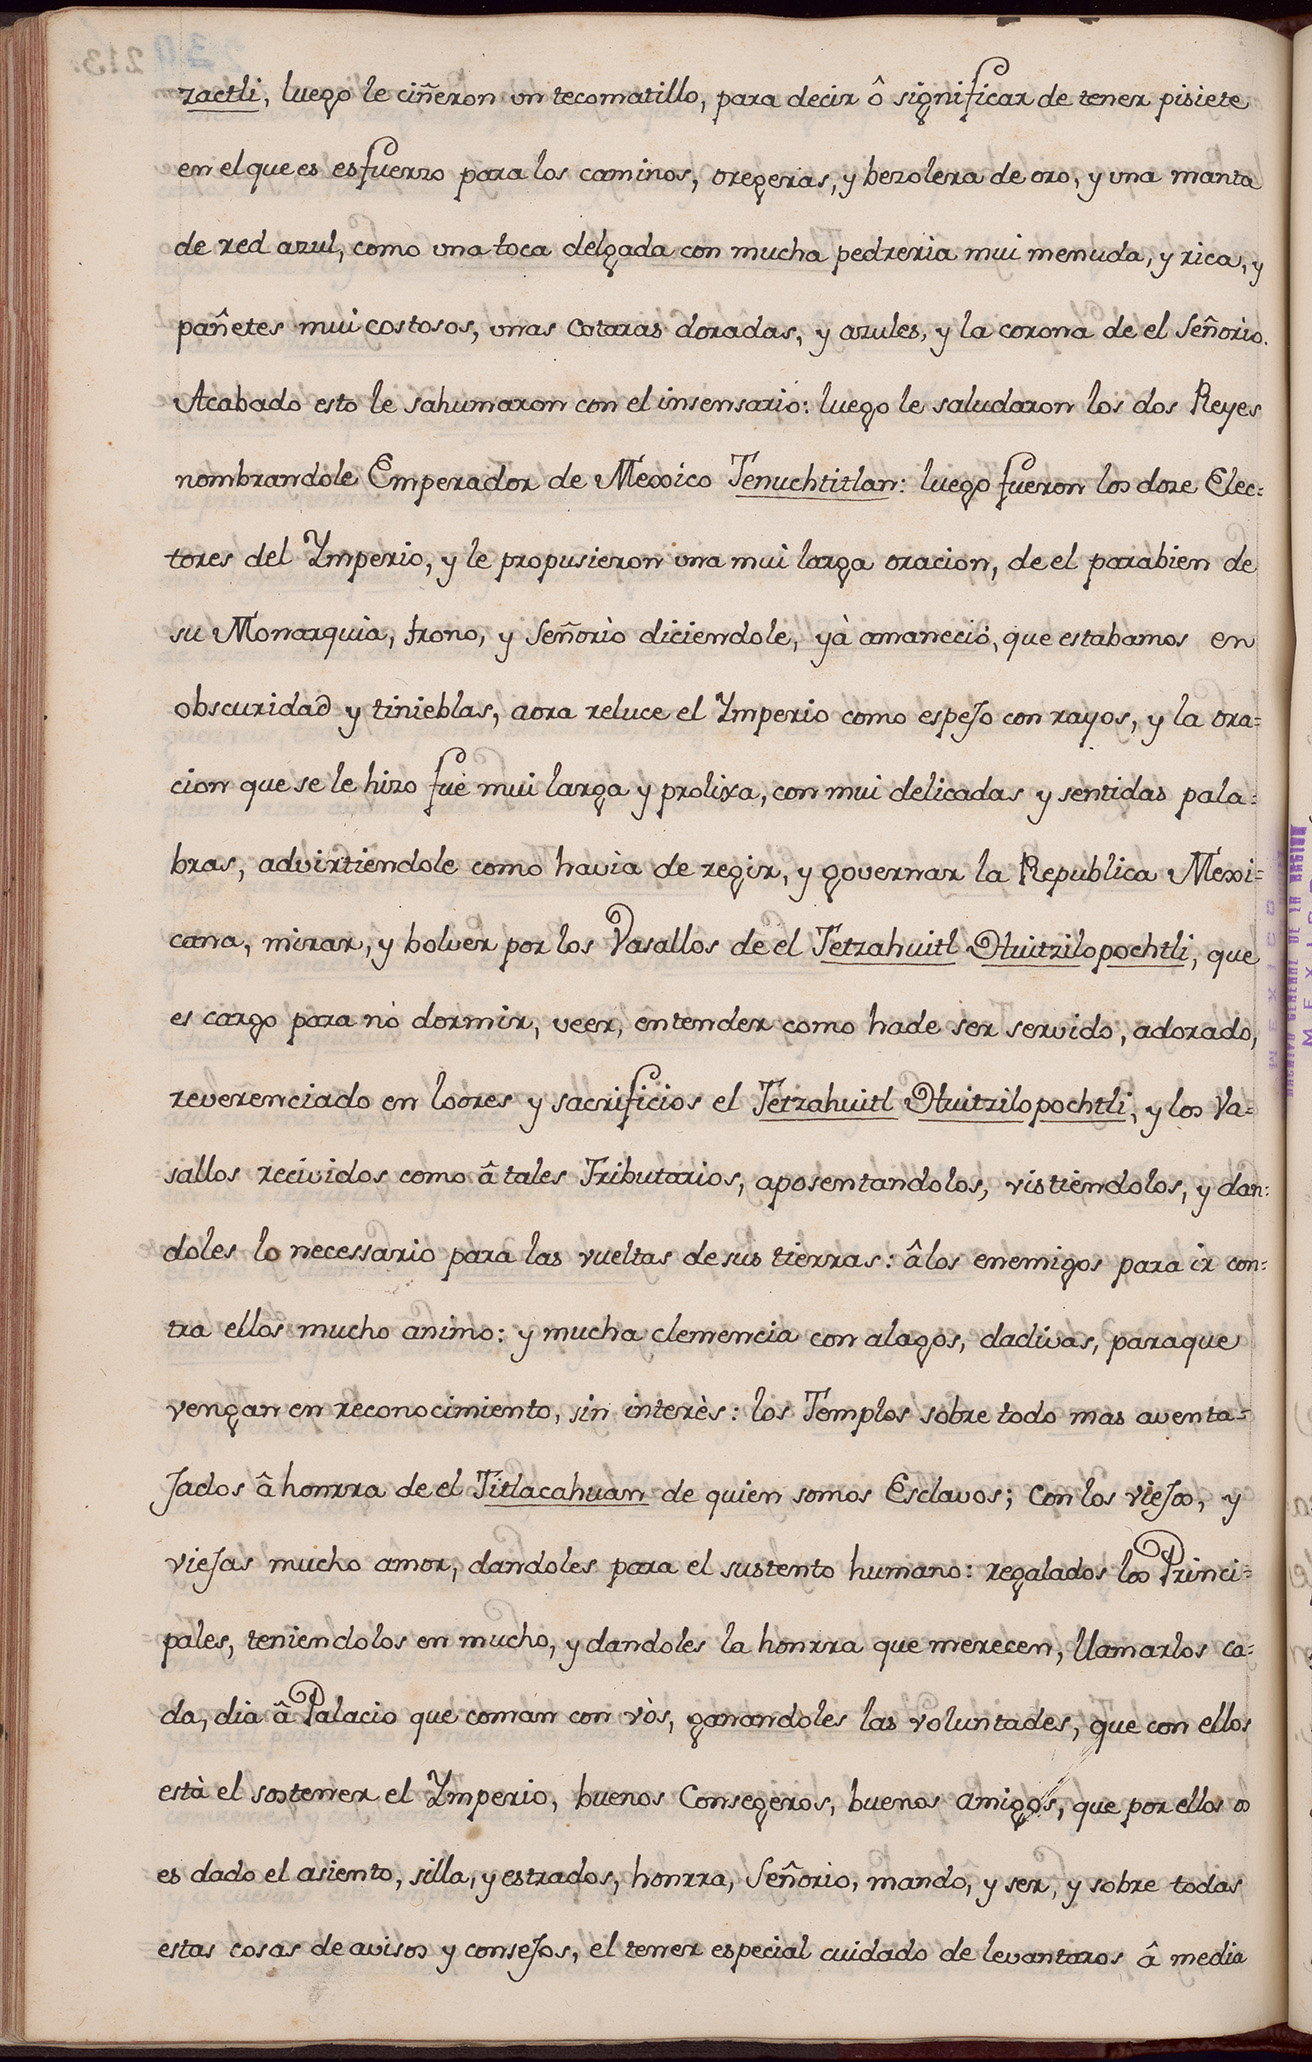 zactli, luego le ciñeron vn tecomatillo, para decir ô significar de tener pisiete
en el que es esfuerzo para los caminos, oregeras, y bezolera de oro, y vna manta
de red azul, como vna toca delgada con mucha pedreria mui menuda, y rica, y
pañetes mui costosos, vnas cotaras doradas, y azules, y la corona de el Señorio.
Acabado esto le sahumaron con el insensario: luego le saludaron los dos Reyes
nombrandole Emperador de Mexico Tenuchtitlan: luego fueron los doze Elec=
tores del Ymperio, y le propusieron vna mui larga oracion, de el parabien de
su Monarquia, trono, y Señorìo diciendole, yà amaneciò, que estabamos en
obscuridad y tinieblas, aora reluce el Ymperio como espejo con rayos, y la ora=
cion que se le hizo fuè mui larga y prolixa, con mui delicadas y sentidas pala=
bras, advirtiendole como havìa de regir, y governar la Republica Mexi=
cana, mirar, y bolver por los Vasallos de el Tetzahuitl Huitzilopochtli, que
es cargo para nò dormir, veer, entender como hade ser servido, adorado,
reverenciado en loores y sacrificios el Tetzahuitl Huitzilopochtli, y los Va=
sallos recividos como â tales Tributarios, aposentandolos, vistiendolos, y dan=
doles lo necessario para las vueltas de sus tierras: â los enemigos para ir con=
tra ellos mucho animo: y mucha clemencia con alagos, dadivas, paraque
vengan en reconocimiento, sin interès: los Templos sobre todo mas aventa=
jados â honrra de el Titlacahuan de quien somos Esclavos; con los viejos, y
viejas mucho amor, dandoles para el sustento humano: regalados los Princi=
pales, teniendolos en mucho, y dandoles la honrra que merecen, llamarlos ca=
da, dia â Palacio que coman con vòs, ganandoles las voluntades, que con ellos
està el sostener el Ymperio, buenos Consegeros, buenos amigos, que por ellos os
es dado el asiento, silla, y estrados, honrra, Señorio, mando, y ser, y sobre todas
estas cosas de avisos y consejos, el tener especial cuidado de levantaros â media